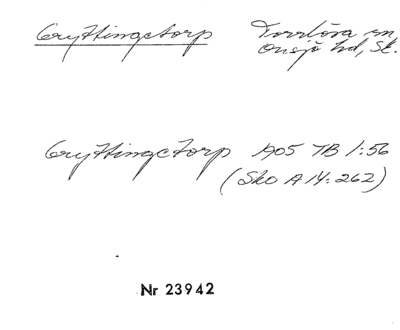 Gryttingetorp Torrlösa sn,
Onsjö hd, Sk.
Gryttingetorp 1905 TB 1:56
(Sko A 14: 262)
Nr 23942